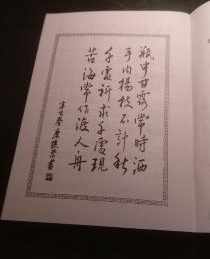 瓶中甘露常時洒
手内楊枝不計秋
千處祈求千處現
苦海常作渡人舟